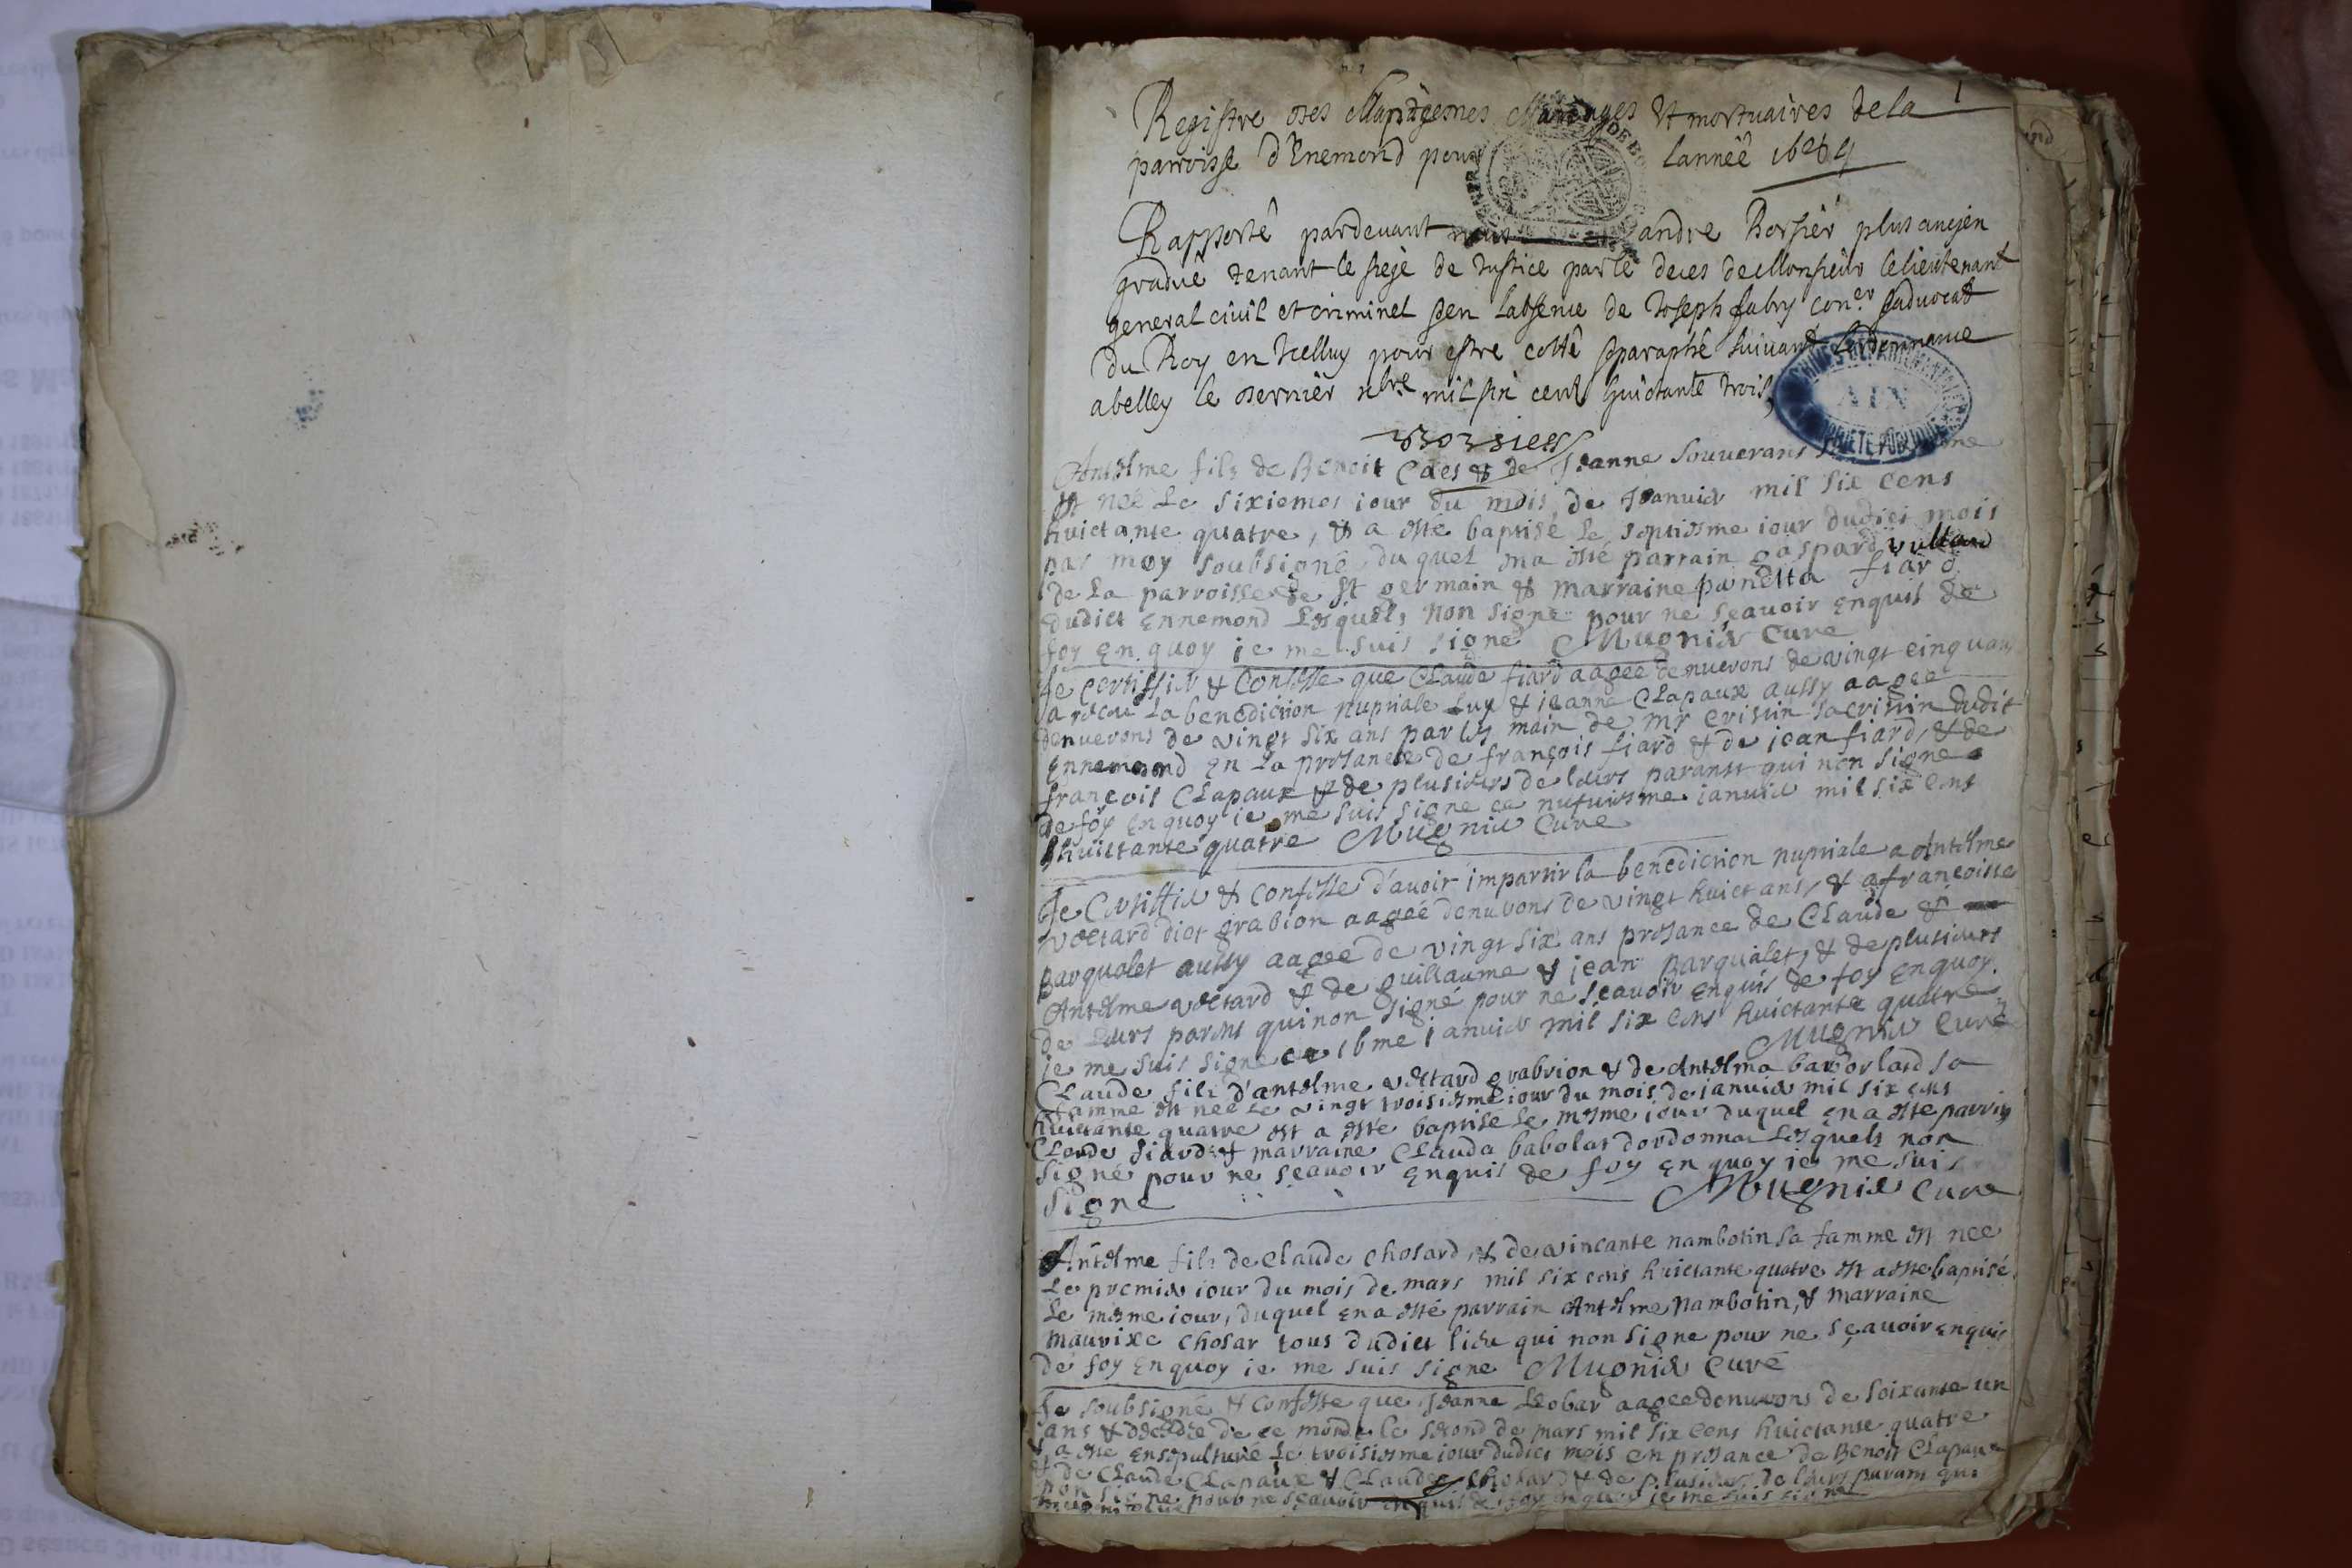 1
Registre des Baptesmes Mariages et mortuaires de la
parroisse d'Enemond pour lannée 1684
Rapporté pardevant nous andre Borsier plus ancien
gradué tenant le siege de Justice par le deces de Monsieur le lieutenant
general civil et criminel en labsence de Joseph fabry coner advocat
du Roy en Icelluy pour estre cotté paraphé suivant lordonnance
a belley le dernier xbre mil six cent huictante trois
Borsier
Antelme filz de Benoit Caes & de Jeanne Souverans sa femme
est neé le sixiemes iour du mois de Jeanvier mil six cens
huictante quatre, & a esté baptisé le septiesme iour dudict mois
par moy soubsigné duquel ma esté parrain gaspard vullard
de la parroisse de St germain & marraine panetta fiard
dudict Ennemond Lesquels non signe pour ne sçavoir enquis de
foy En quoy ie me suis signe Mugnier Cure
Je certiffier & Confesse que Claude fiard aagee denuerons de vingt cinq ans
a receu La benediction nuptiale Luy & jeanne Clapaux aussy aagee
denuerons de vingt six ans par les main de mr cristin sacristin dudit
Ennemond En La presance de françois fiard & de jean fiard, & de
françois Clapaux & de plusieurs de leurs paranst qui non signe
de foy En quoy ie me suis signe ce ianuier mil six cens
huictante quatre Mugnier Cure
Je Certiffier & Confesse d'avoir impartir la benediction nuptiale a Antelme
voetard dict grabion aagée denuerons de vingt huict ans, & a françoisse
parqualet aussy aagee de vingt six ans presance de Claude &
Antelme voetard & de guillaume & jean parqualet, & de plusieurs
de Leurs parens qui non signé pour ne sçavoir Enquis de foy En quoy
ie me suis signe ce 16me ianuier mil six cens huictante quatre
Mugnier Curé
CLaude filz d'antelme voetard grabrion & de Antelma barborlard sa
famme est neé Le vingt troisiesme iour du mois de ianuier mil six cens
huictante quatre est a esté baptisé Le mesme iour duquel En a esté parrin
Claude fiard & marraine CLauda babolat dordonnaz Lesquels non
signé pour ne sçavoir Enquis de foy En quoy ie me suis
signe Mugnier Cure
Antelme filz de Claude Chosard, & de vincante nambotin sa famme est neé
Le premier iour du mois de mars mil six cens huictante quatre est a este baptisé
Le mesme iour, duquel En a esté parrain Antelme nambotin, & marraine
maurixe Chosar tous dudict lieu qui non signe pour ne sçavoir Enquis
de foy En quoy ie me suis signe Mugnier Curé
Je soubsigné & Confesse que Jeanne Leobar aagee denuerons de soixante un
ans & decedée de ce monde le second de mars mil six cens huictante quatre
& a este Ensepulturé Le troisiesme iour dudict mois en presance de Benoit CLapaux
& de CLaude CLapaux & CLaude Chosard & de plusieurs de leurs param qui
non signe pour ne sçavoir enquis de foy en quoy ie me suis signe
Mugnier Cure
ARCHIVES DEPARTEMENTALES
AIN
PROPRIETE PUBLIQUE